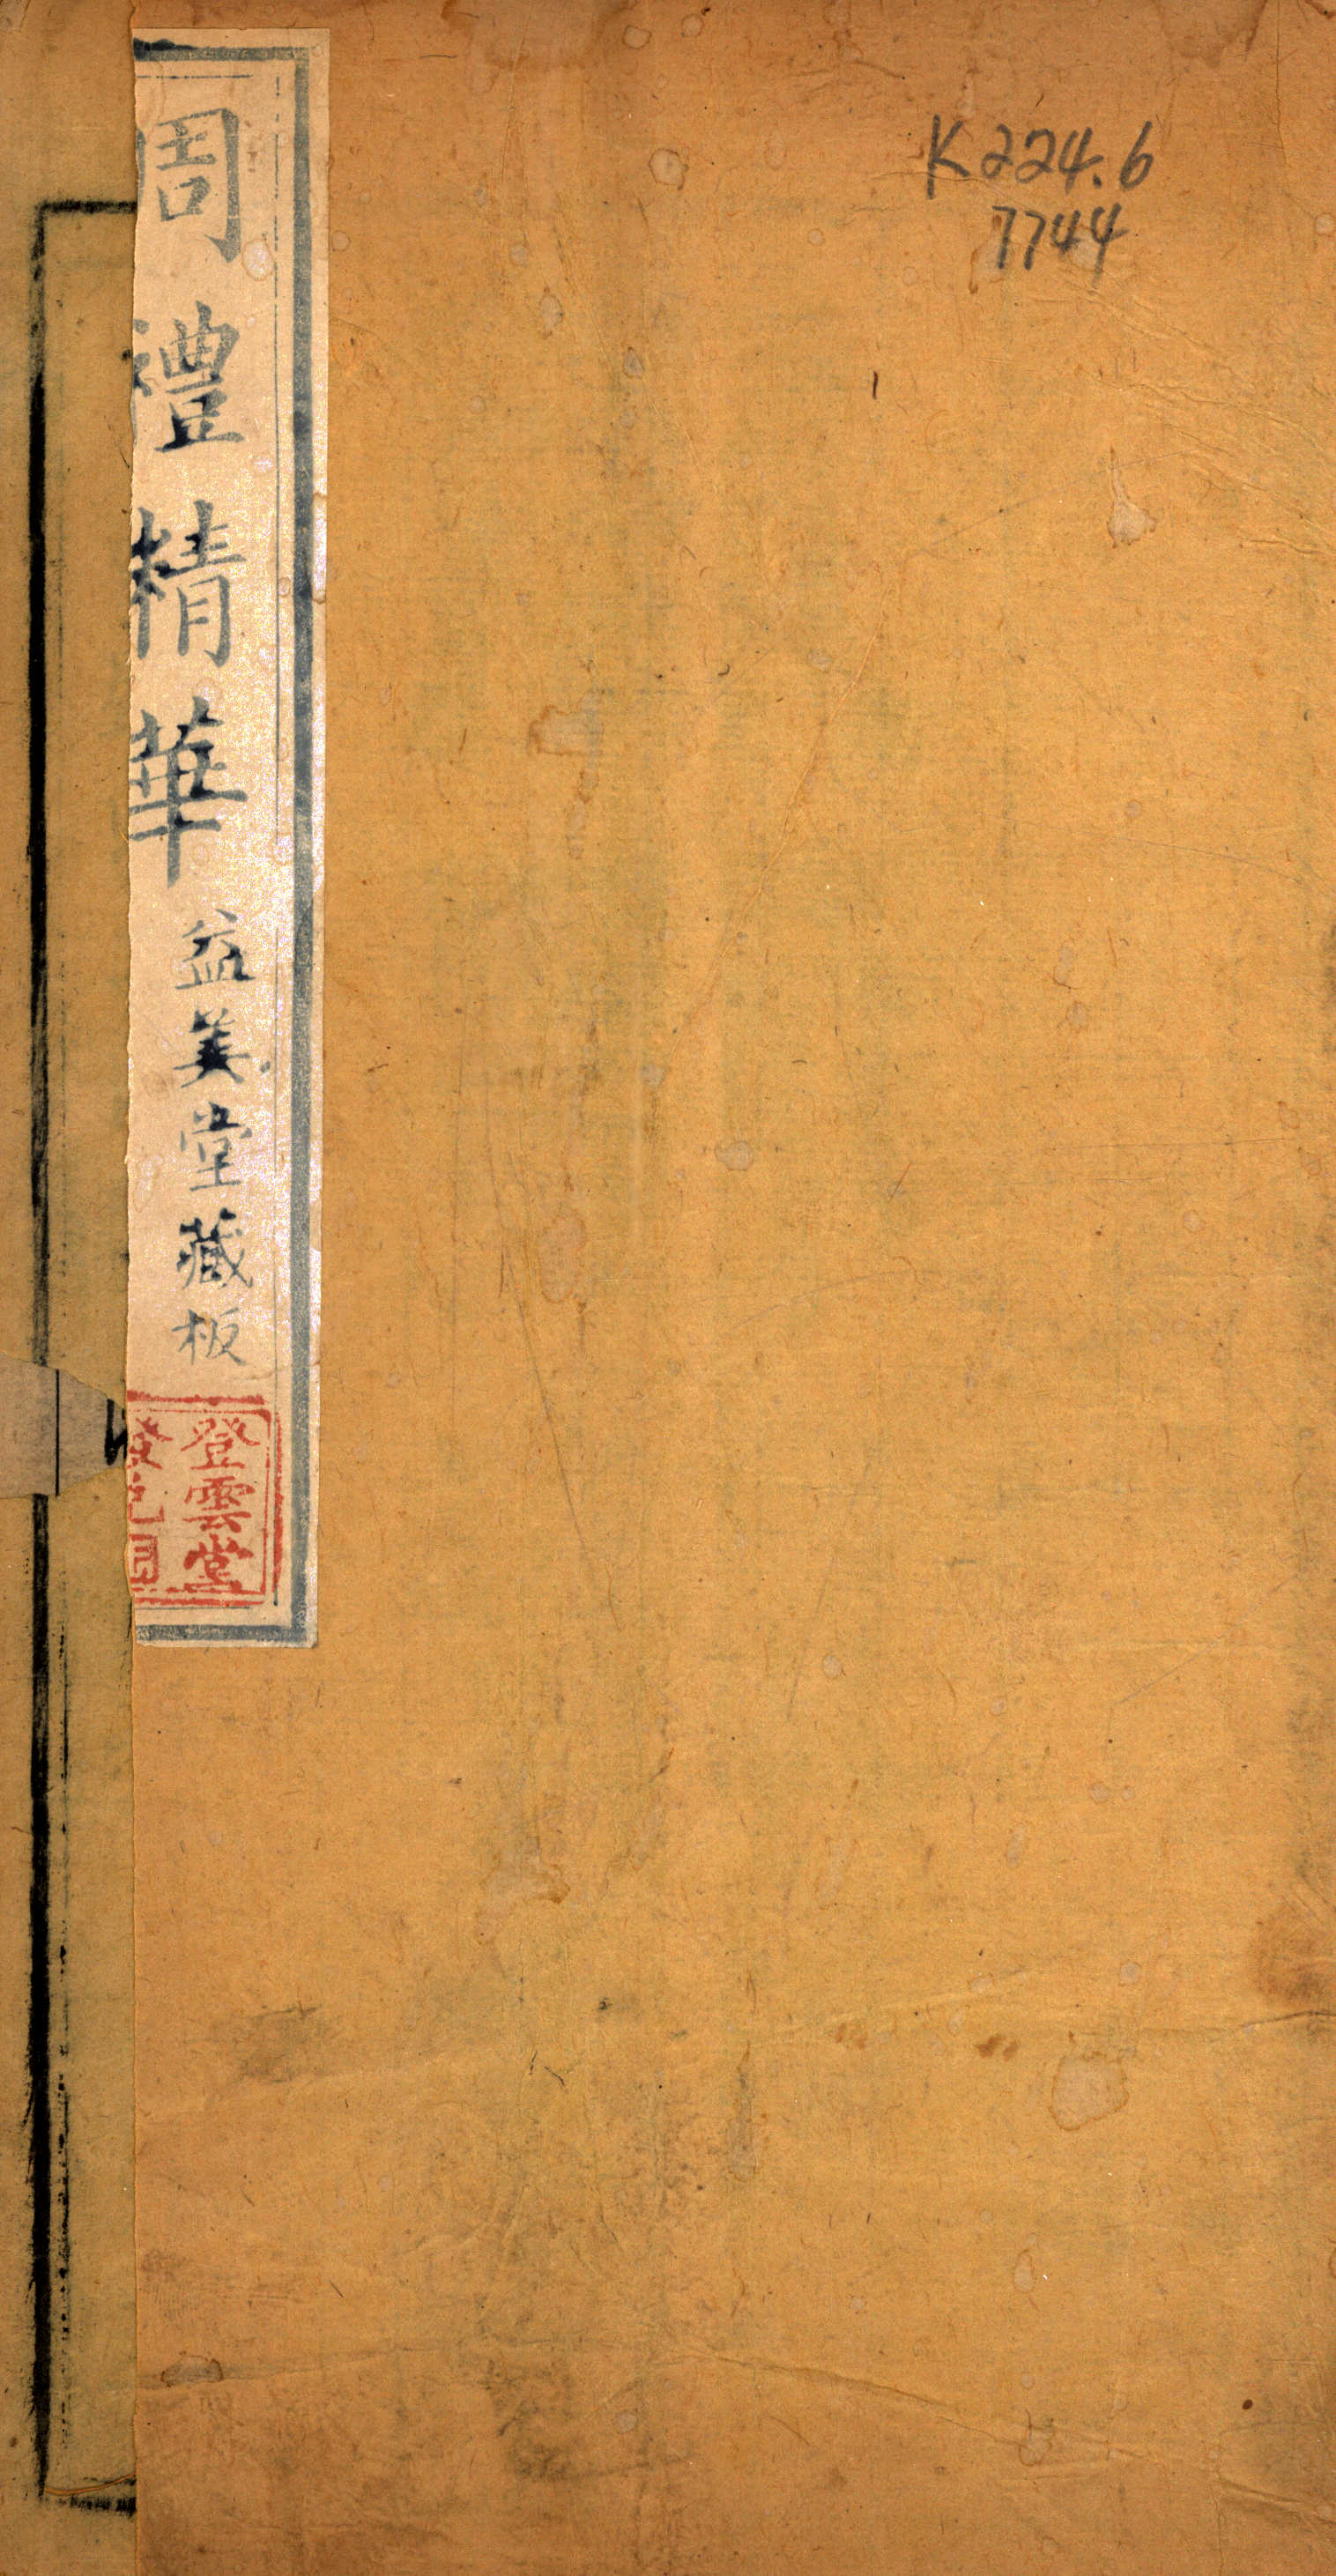 K224.6
7744
周禮精華
益美堂藏板
登雲堂
發兌印